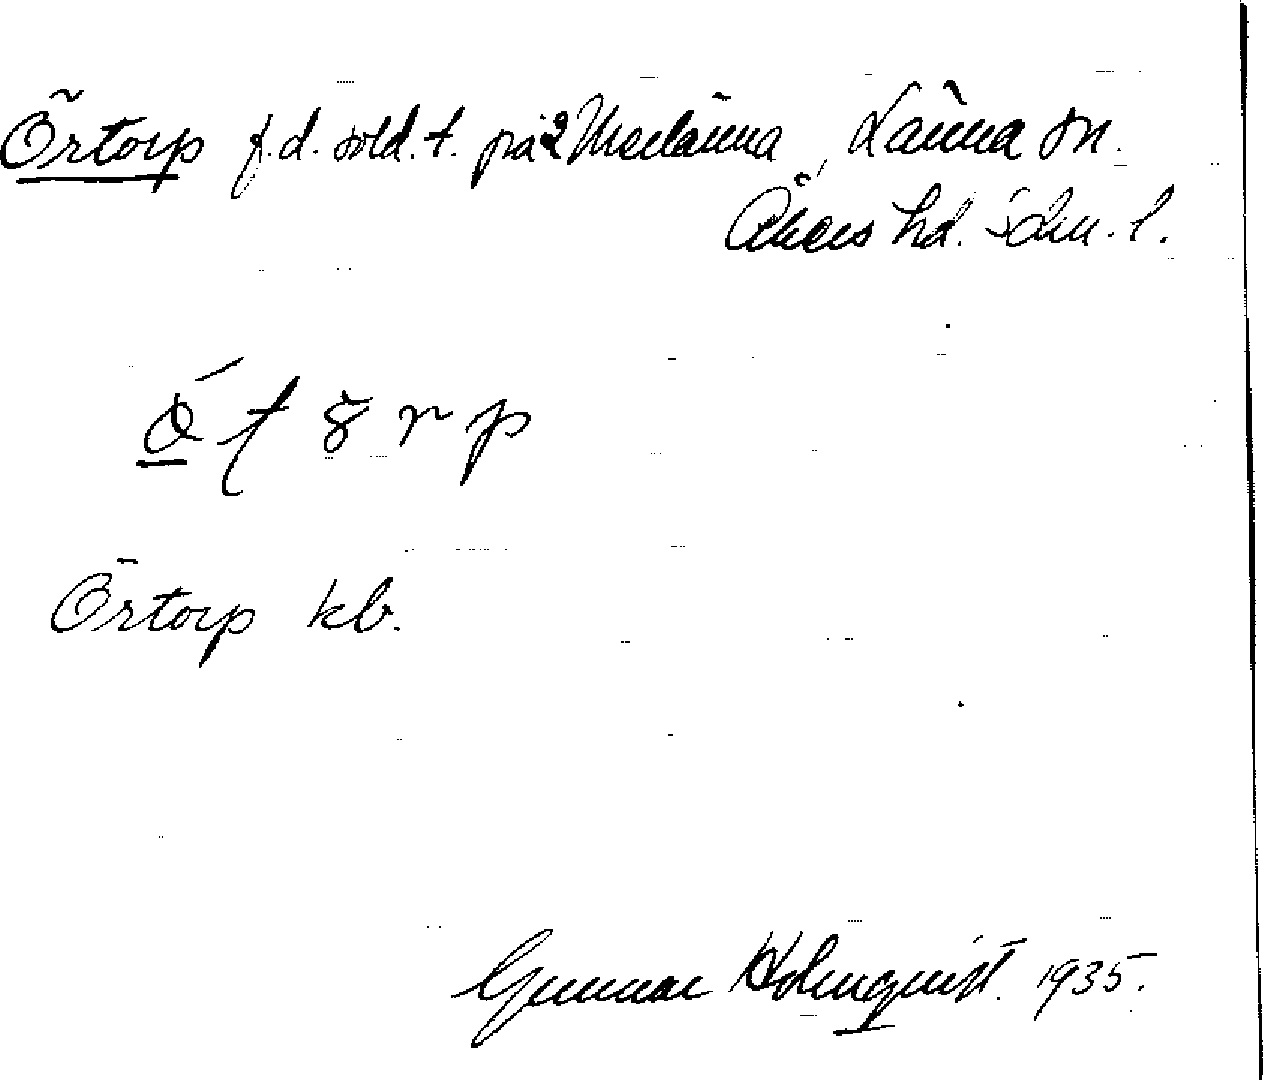 Örtorp f.d. sold. t. på Merlänna, Länna sn.
Åkers hd. Södm. l.
Örtorp kb.
Gunnar Holmquist. 1935.